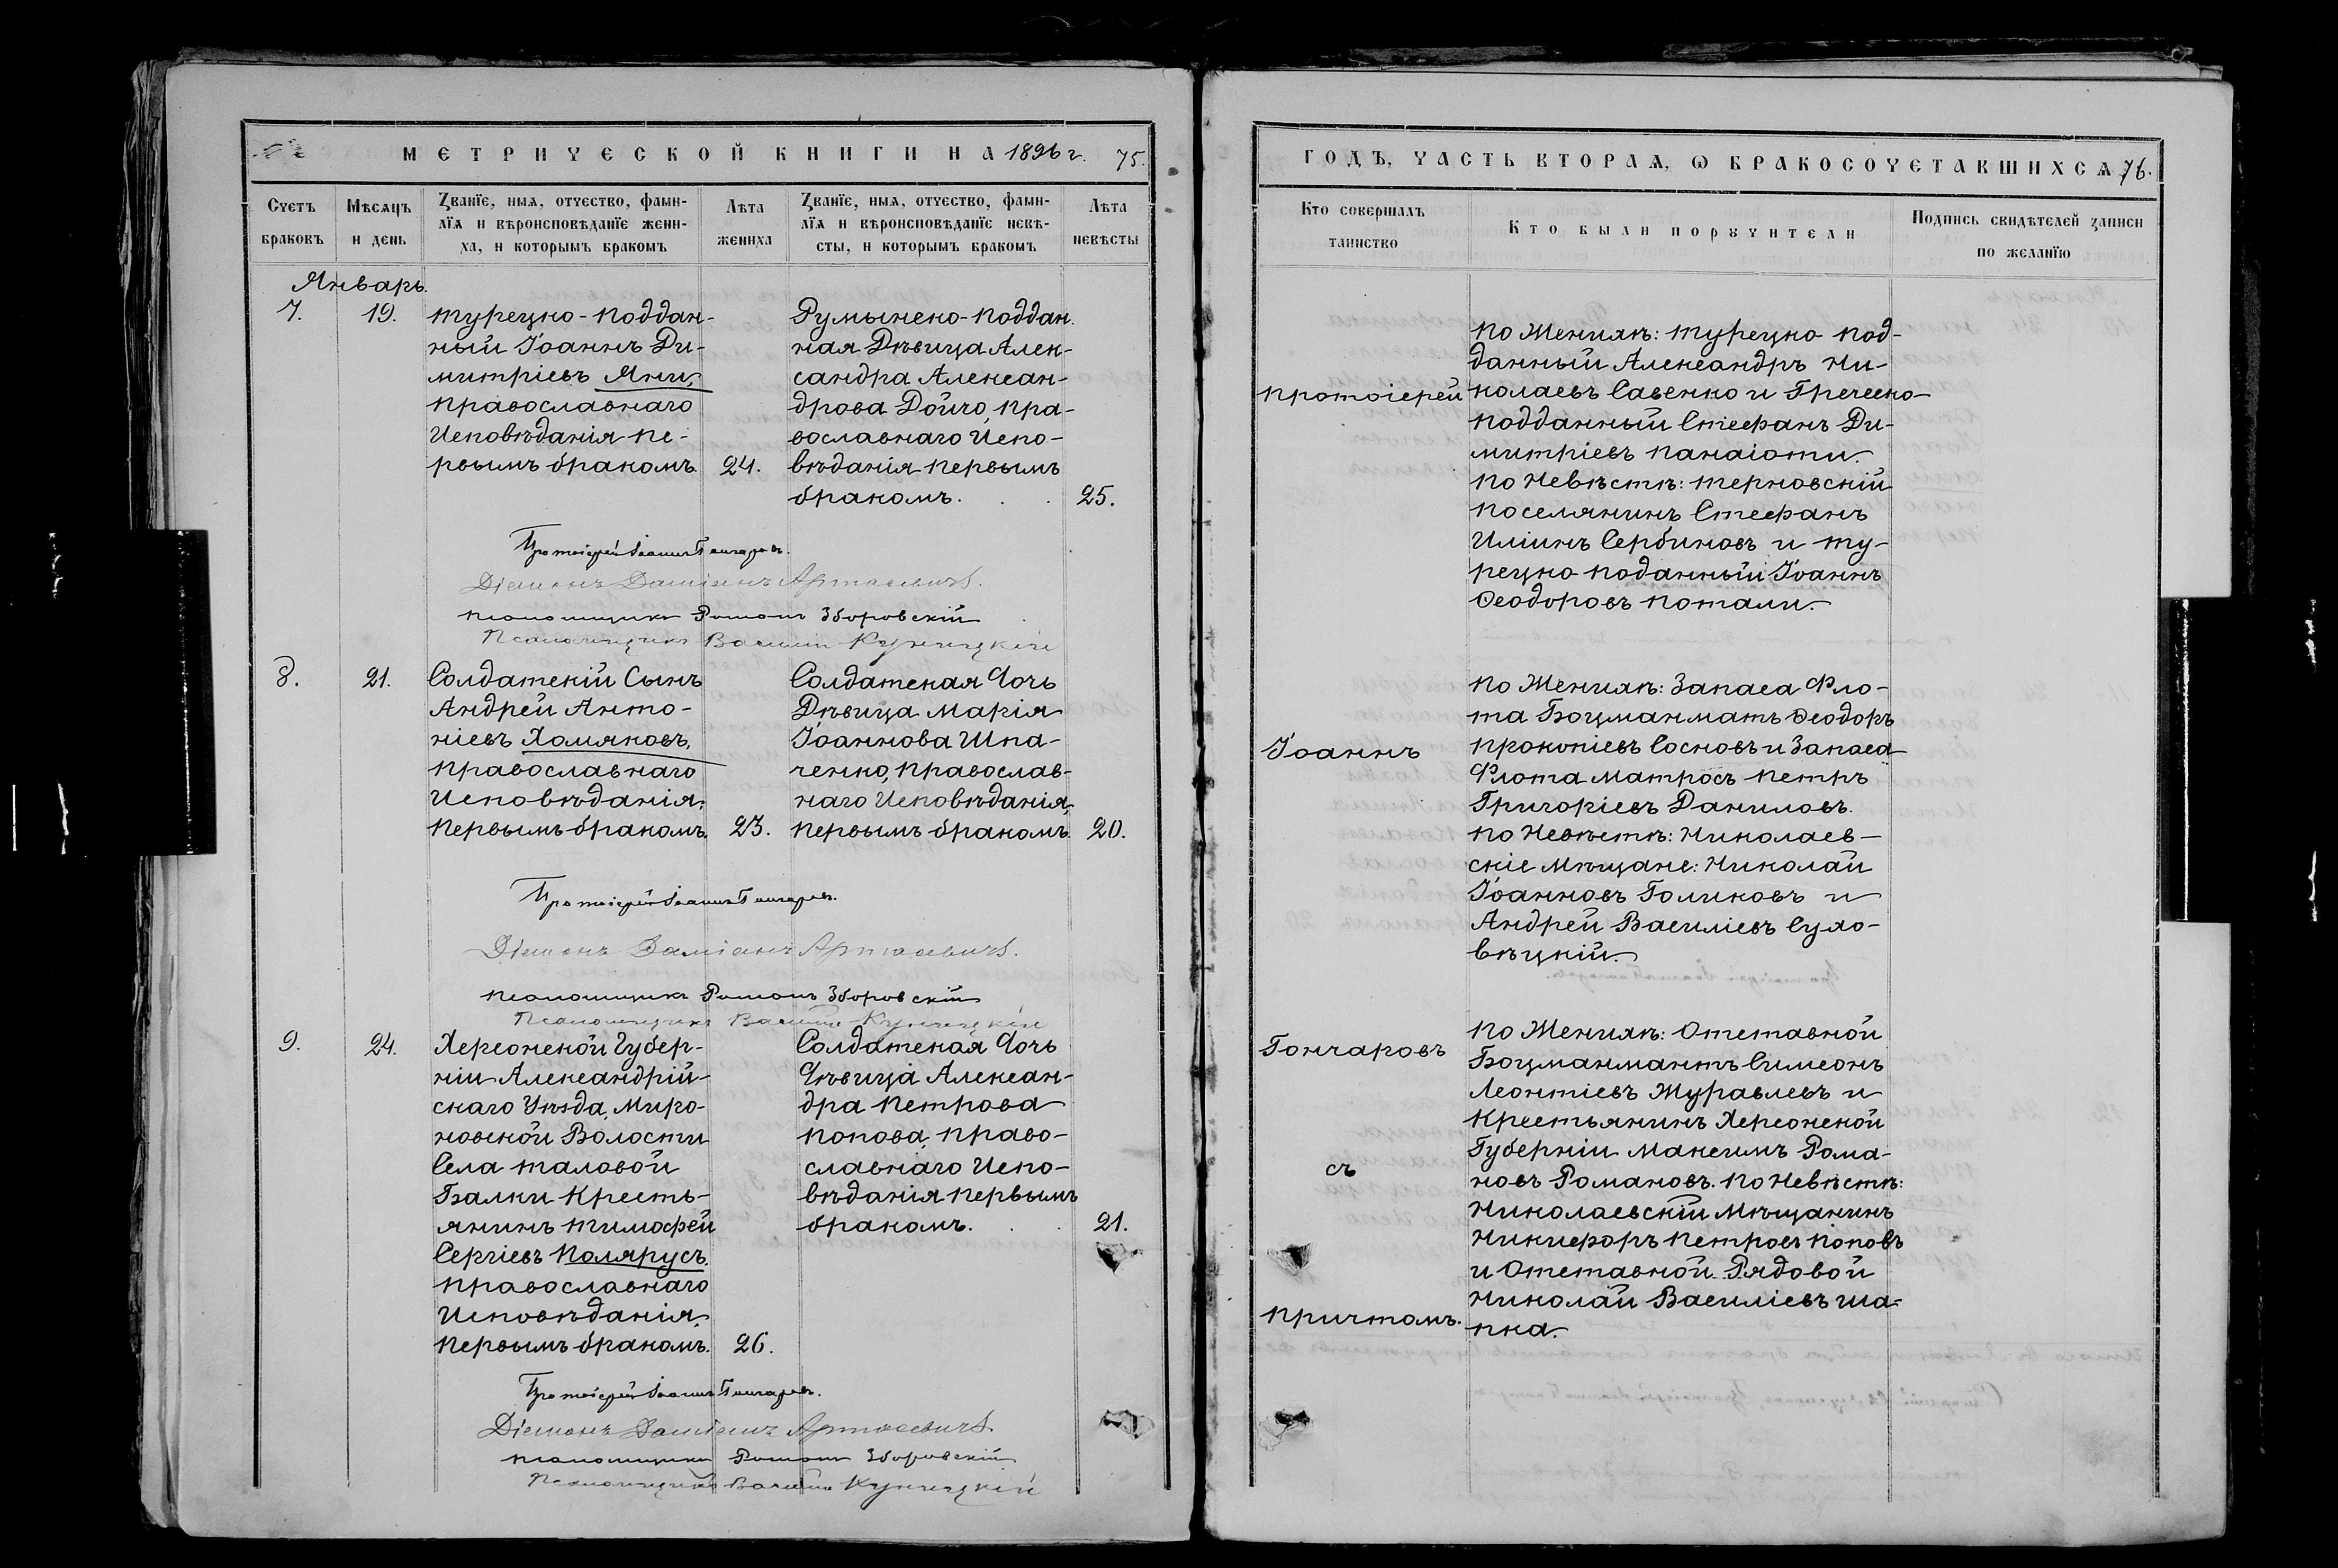 МЕТРИЧЕСКОЙ КНИГИ НА 1896 г. 75.
Счетъ браковъ
Мѣсяцъ и день
Званїе, имя, отчество, фамилїя и вѣроисповѣданїе жениха, и которымъ бракомъ
Лѣта жениха
Званїе, имя, отчество, фамилїя и вѣроисповѣданїе невѣсты, и которымъ бракомъ
Лѣта невѣсты
Январь.
7. 19.
Турецко-поддан-
ный Іоаннъ Ди-
митріевъ Яни,
православнаго
Исповѣданія пе-
рвымъ бракомъ. 24.
Румынско-поддан.
ная Дѣвица Алек-
сандра Алексан-
дрова Дойчо, пра-
вославнаго Испо-
вѣданія первымъ
бракомъ. 25.
Протоіерей Іоаннъ Гончаровъ.
Діаконъ Даміанъ Артасевичъ.
Псаломщикъ Романъ Зборовскій
Псаломщикъ Василій
8. 21.
Солдатскій Сынъ
Андрей Анто-
ніевъ Хомяковъ,
православнаго
Исповѣданія,
первымъ бракомъ. 23.
Солдатская Дочь
Дѣвица Марія
Іоаннова Шпа-
ченко, православ-
наго Исповѣданія,
первымъ бракомъ. 20.
Протоіерей Іоаннъ Гончаровъ.
Діаконъ Даміанъ Артасевичъ.
Псаломщикъ Романъ Зборовскій
Псаломщикъ Василій
9. 24.
Херсонской Губер-
ніи Александрій-
скаго Уѣзда, Миро-
новской Волости
Села Таловой
Балки Кресть-
янинъ Тимофей
Сергіевъ Полярусъ,
православнаго
Исповѣданія,
первымъ бракомъ. 26.
Солдатская Дочь
Дѣвица Алексан-
дра Петрова
Попова, право-
славнаго Испо-
вѣданія первымъ
бракомъ. 21.
Протоіерей Іоаннъ Гончаровъ.
Діаконъ Даміанъ Артасевичъ.
Псаломщикъ Романъ Зборовскій
Псаломщикъ Василій
ГОДЪ, ЧАСТЬ ВТОРАЯ, Ѡ БРАКОСОЧЕТАВШИХСЯ 76.
Кто совершалъ таинство
Кто были порꙋчители
Подпись свидѣтелей записи по желанїю
Протоіерей
Іоаннъ
Гончаровъ
съ
причтомъ.
По Женихѣ: Турецко под-
данный Александръ Ни-
колаевъ Савенко и Греческо-
подданный Стефанъ Ди-
митріевъ Панаіоти.
По Невѣстѣ: Терновскій
поселянинъ Стефанъ
Иліинъ Сербиновъ и ту-
рецко поданный Іоаннъ
Ѳеодоровъ Потали.
По Женихѣ: Запаса Фло-
та Боцманматъ Ѳеодоръ
Прокопіевъ Сосновъ и Запаса
Флота Матросъ Петръ
Григоріевъ Даниловъ.
По Невѣстѣ: Николаев-
скіе Мѣщане: Николай
Іоанновъ Голиковъ и
Андрей Василіевъ Сухо-
вѣцкій.
По Женихѣ: Отставной
Боцманмантъ Симеонъ
Леонтіевъ Журавлевъ и
Крестьянинъ Херсонской
Губерніи Максимъ Рома-
новъ Романовъ. По Невѣстѣ:
Николаевскій Мѣщанинъ
Никифоръ Петровъ Поповъ
и Отставной Рядовой
Николай Василіевъ Ша-
пка.